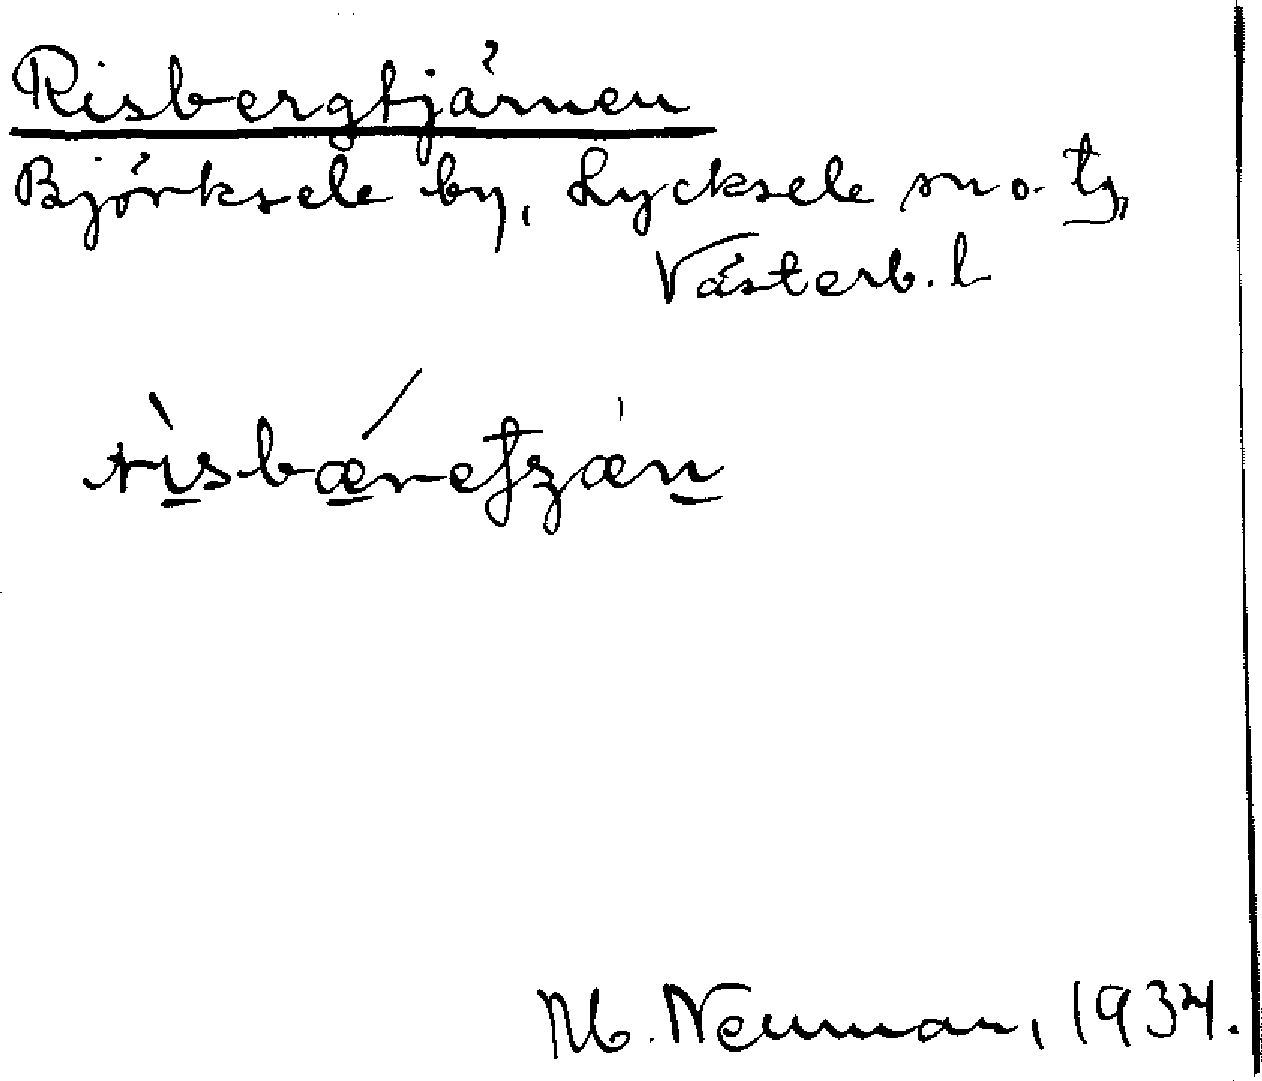 Risbergtjärnen
Björksele by, Lycksele sn o. tg,
Västerb. l
risbæretʃzæn
M. Neuman, 1934.